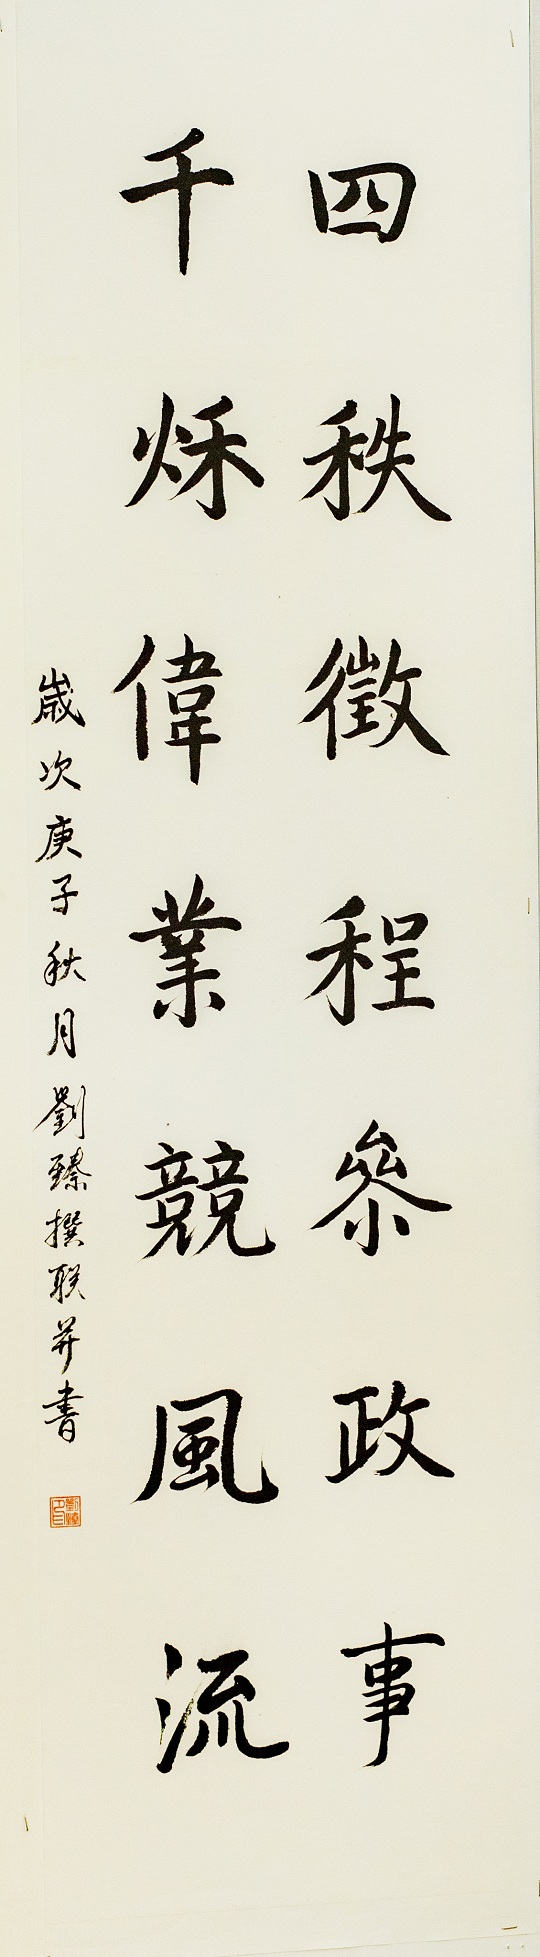 四秩徵程參政事
千烁偉業競風流
歲次庚子秋月劉臻撰联并書